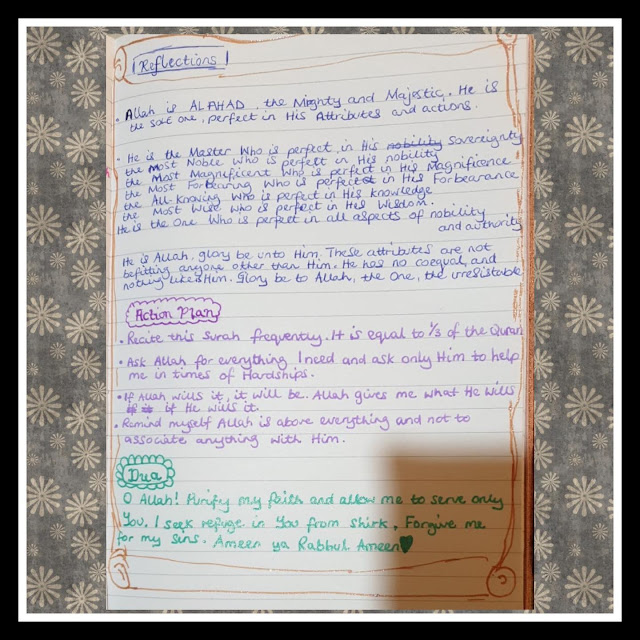 Reflections
. Allah is AL AHAD, the Mighty and Majestic. He is
the sole one, perfect in His Attributes and actions.
. He is the Master Who is perfect in His nobility Sovereignty
the Most Noble Who is perfect in His nobility
the Most Magnificent Who is perfect in His Magnificence
the Most Forbearing Who is perfect in His Forbearance
the All-Knowing Who is perfect in His knowledge
the Most Wise Who is perfect in His Wisdom.
He is the One Who is perfect in all aspects of nobility
and authority
He is Allah, glory be unto Him. These attributes are not
befitting anyone other than Him. He has no coequal, and
nothing like Him. Glory be to Allah, the One, the irresistable
Action Plan
• Recite this Surah frequently. It is equal to 1/3 of the Quran
• Ask Allah for everything I need and ask only Him to help
me in times of Hardships.
• If Allah wills it, it will be. Allah gives me what He wills
if He wills it.
• Remind myself Allah is above everything and not to
associate anything with Him.
Dua
O Allah! Purify my faith and allow me to serve only
You. I seek refuge in You from shirk, Forgive me
for my sins. Ameen ya Rabbul Ameen♥